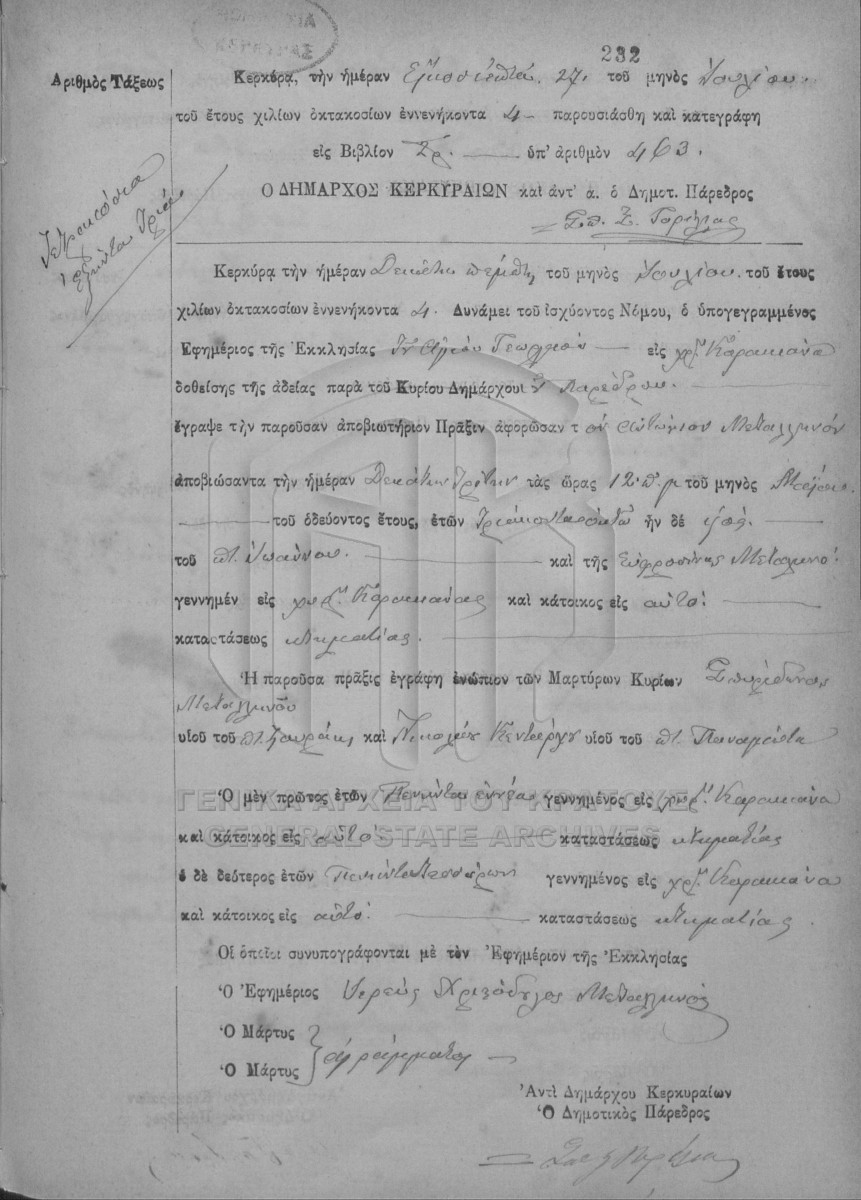 232
Ἀριθμὸς Τάξεως
Τετρακόσια
ἑξήντα τρία
Κερκύρα, τὴν ἡμέραν Εἰκοσιεπτά. 27. τοῦ μηνὸς Ἰουλίου.
τοῦ ἔτους χιλίων ὀκτακοσίων ἐννενήκοντα 4 παρουσιάσθη καὶ κατεγράφη
εἰς Βιβλίον ὑπ' ἀριθμὸν 463.
Ο ΔΗΜΑΡΧΟΣ ΚΕΡΚΥΡΑΙΩΝ καὶ ἀντ' α. ὁ Δημοτ. Πάρεδρος
Κερκύρα τὴν ἡμέραν Δεκάτην πέμπτην, τοῦ μηνὸς Ἰουλίου. τοῦ ἔτους
χιλίων ὀκτακοσίων ἐννενήκοντα 4. Δυνάμει τοῦ ἰσχύοντος Νόμου, ὁ ὑπογεγραμμένος
Ἐφημέριος τῆς Ἐκκλησίας τοῦ Ἁγίου Γεωργίου εἰς χρ. Κορακιάνα
δοθείσης τῆς ἀδείας παρὰ τοῦ Κυρίου Δημάρχου Παρέδρου.
ἔγραψε τὴν παροῦσαν ἀποβιωτήριον Πρᾶξιν ἀφορῶσαν τ ὸν Ἀντώνιον Μεταλληνόν
ἀποβιώσαντα τὴν ἡμέραν Δεκάτην τρίτην τὰς ὥρας 12 π.μ τοῦ μηνὸς
τοῦ ὁδεύοντος ἔτους, ἐτῶν τριάκοντα ὀκτώ ἦν δὲ υἱὸς
τοῦ πτ. Ἰωάννου. καὶ τῆς Εὐφροσύνης Μεταληνοῦ
γεννημέν εἰς χωρ. Κορακιάνας καὶ κάτοικος εἰς αὐτό.
καταστάσεως κτηματίας.
Ἡ παροῦσα πρᾶξις ἐγράφη ἐνώπιον τῶν Μαρτύρων Κυρίων Σπυρίδωνος
Μεταλληνοῦ
υἱοῦ τοῦ πτ. καὶ Νικολάου Κένταρχου υἱοῦ τοῦ πτ. Παναγιώτα
Ὁ μὲν πρῶτος ἐτῶν Πενῆντα ἐννέα γεννημένος εἰς χωρ. Κορακιάνα
καὶ κάτοικος εἰς αὐτό. καταστάσεως κτηματίας
ὁ δὲ δεύτερος ἐτῶν Πενῆντα τεσσάρων γεννημένος εἰς χρ. Κορακιάνα
καὶ κάτοικος εἰς αὐτό. καταστάσεως κτηματίας.
Οἱ ὁποῖοι συνυπογράφονται μὲ τὸν Ἐφημέριον τῆς Ἐκκλησίας
Ὁ Ἐφημέριος Ἱερεὺς Χριστόδουλος Μεταλληνός
Ὁ Μάρτυς
ἀγράμματοι
Ὁ Μάρτυς
Ἀντὶ Δημάρχου Κερκυραίων
Ὁ Δημοτικὸς Πάρεδρος
ΓΕΝΙΚΑ ΑΡΧΕΙΑ ΤΟΥ ΚΡΑΤΟΥΣ
GENERAL STATE ARCHIVES